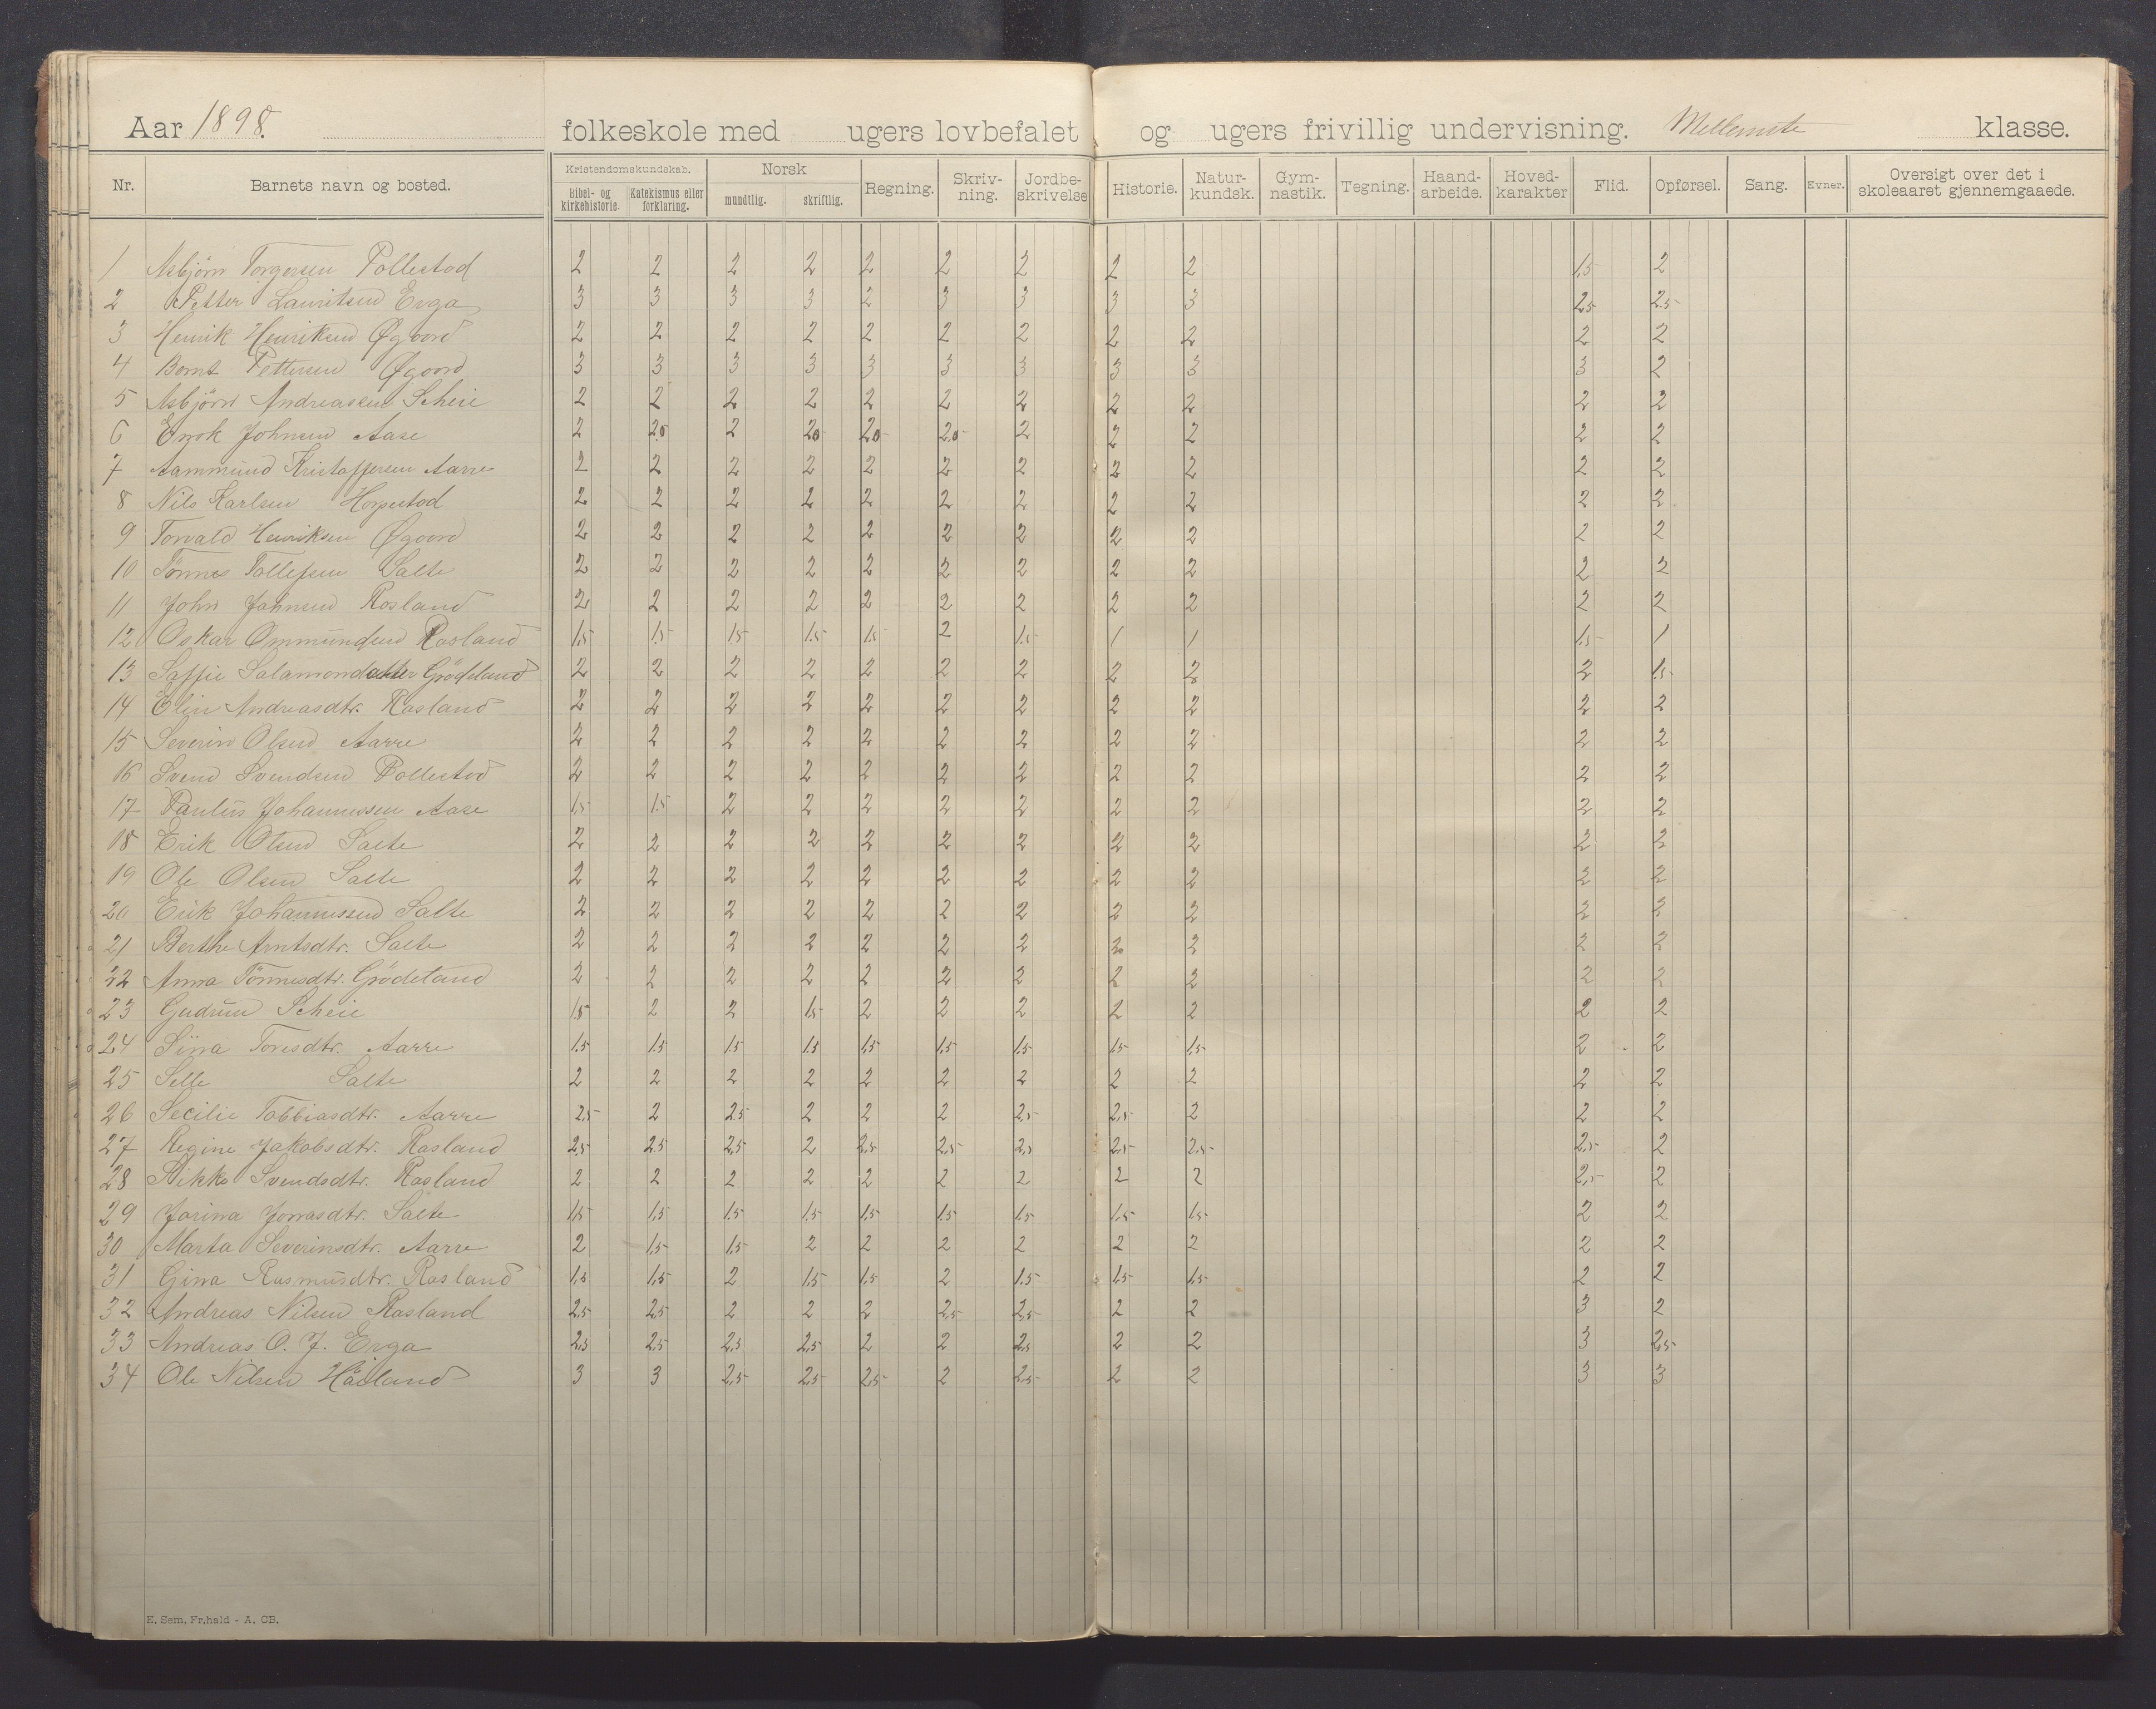 Aar 1898. folkeskole med ugers lovbefalet og ugers frivillig undervisning. Mellemste klasse.
Nr. Barnets navn og bosted. Kristendomskundskab. Bibel- og kirkehistorie. Katekismus eller forklaring. Norsk mundtlig. skriftlig. Regning. Skriv-ning. Jordbe-skrivelse Historie. Natur-kundsk. Gym-nastik. Tegning. Haand-arbeide. Hoved-karakter Flid. Opførsel. Sang. Evner. Oversigt over det i skoleaaret gjennemgaaede.
1 Asbjörn Torgersen Pollestad 2 2 2 2 2 2 2 2 2 1,5 2
2 Petter Lauritsen Erga 3 3 3 3 2 3 3 3 3 2,5 2,5
3 Henrik Henriksen Øgaard 2 2 2 2 2 2 2 2 2 2 2
4 Bernt Pettersen Øgaard 3 3 3 3 3 3 3 3 3 3 2
5 Asbjörn Andreassen Scheie 2 2 2 2 2 2 2 2 2 2 2
6 Enok Johnsen Aase 2 2,0 2 2,0 2,0 2,0 2 2 2 2 2
7 Aammund Kristoffersen Aarre 2 2 2 2 2 2 2 2 2 2 2
8 Nils Karlsen Horpestad 2 2 2 2 2 2 2 2 2 2 2
9 Torvald Henriksen Øgaard 2 2 2 2 2 2 2 2 2 2 2
10 Tönnes Tollefsen Salte 2 2 2 2 2 2 2 2 2 2 2
11 John Johnsen Rosland 2 2 2 2 2 2 2 2 2 2 2
12 Oskar Ommundsen Rosland 1,5 1,5 1,5 1,5 1,5 2 1,5 1 1 1,5 1
13 Saffie Salamondatter Grödeland 2 2 2 2 2 2 2 2 2 2 1,5
14 Elin Andreasdtr. Rosland 2 2 2 2 2 2 2 2 2 2 2
15 Severin Olsen Aarre 2 2 2 2 2 2 2 2 2 2 2
16 Svend Svendsen Pollestad 2 2 2 2 2 2 2 2 2 2 2
17 Paulus Johannessen Aase 1,5 1,5 2 2 2 2 2 2 2 2 2
18 Erik Olsen Salte 2 2 2 2 2 2 2 2 2 2 2
19 Ole Olsen Salte 2 2 2 2 2 2 2 2 2 2 2
20 Erik Johannessen Salte 2 2 2 2 2 2 2 2 2 2 2
21 Berthe Arntsdtr. Salte 2 2 2 2 2 2 2 2 2 2 2
22 Anna Tönnesdtr. Grödeland 2 2 2 2 2 2 2 2 2 2 2
23 Gudrun Scheie 1,5 2 2 1,5 2 2 2 2 2 2 2
24 Sina Toresdtr. Aarre 1,5 1,5 1,5 1,5 1,5 1,5 1,5 1,5 1,5 2 2
25 Selle Salte 2 2 2 2 2 2 2 2 2 2 2
26 Secilie Tobbiasdtr. Aarre 2,5 2 2,5 2 2 2 2,5 2,5 2 2 2
27 Regine Jakobsdtr. Rosland 2,5 2,5 2,5 2 2,5 2,5 2,5 2,5 2,5 2,5 2
28 Svendsdtr. Rosland 2 2 2 2 2 2 2 2 2 2,5 2
29 Jorina Jonasdtr. Salte 1,5 1,5 1,5 1,5 1,5 1,5 1,5 1,5 1,5 2 2
30 Marta Severinsdtr. Aarre 2 1,5 1,5 2 2 2 2 2 2 2 2
31 Gina Rasmusdtr. Rosland 1,5 1,5 2 1,5 1,5 2 1,5 1,5 1,5 2 2
32 Andreas Nilsen Rosland 2,5 2,5 2 2 2 2,5 2,5 2 2 3 2
33 Andreas O. J. Erga 2,5 2,5 2,5 2,5 2 2 2,5 2 2 3 2,5
34 Ole Nilsen Håland 3 3 2,5 2,5 2,5 2 2,5 2 2 3 3
E. Sem, Fr.hald - A. CB.